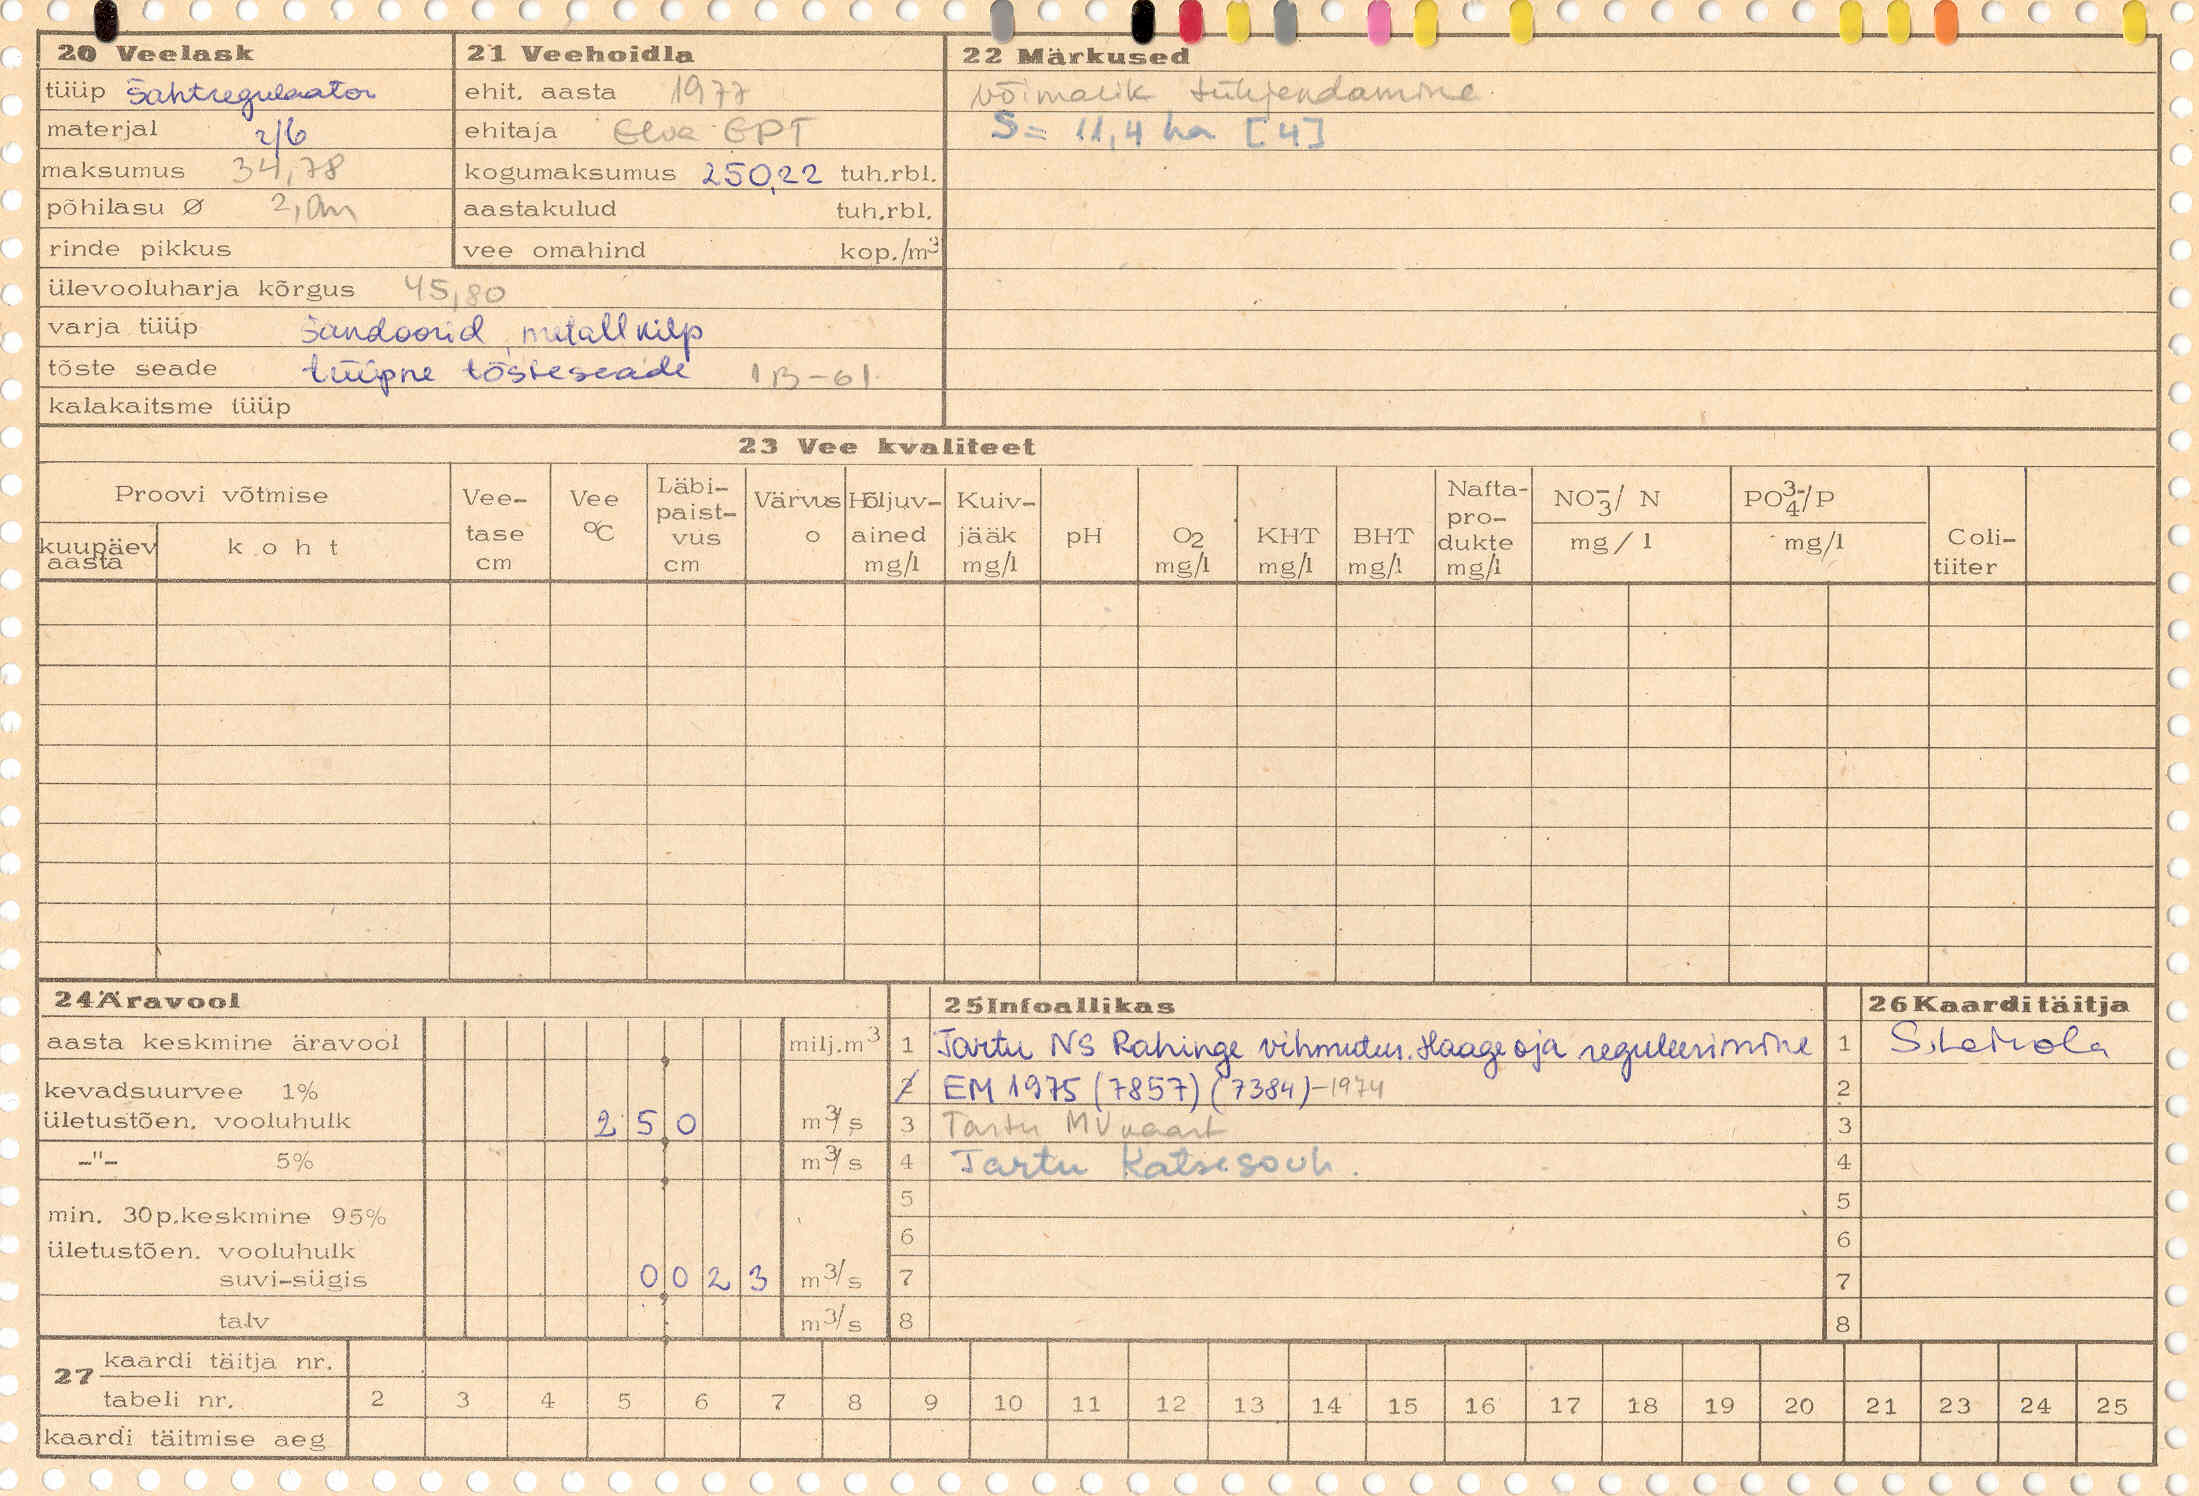 20 Veelask
tüüp šahtregulaator
materjal r/b
maksumus 34,78
põhilasu Ø 2,0m
rinde pikkus
ülevooluharja kõrgus 45,80
varja tüüp šandoorid, metallkilp
tõste seade tüüpne tõsteseade 1B-61
kalakaitsme tüüp
21 Veehoidla
ehit. aasta 1977
ehitaja Elva EPT
kogumaksumus 250,22 tuh.rbl.
aastakulud tuh.rbl.
vee omahind kop./m³
22 Märkused
võimalik tühjendamine
S = 11,4 ha [4]
23 Vee kvaliteet
Proovi võtmise
kuupäev aasta
koht
Vee-tase cm
Vee °C
Läbi-paist-vus cm
Värvus o
Hõljuv-ained mg/l
Kuiv-jääk mg/l
pH
O₂ mg/l
KHT mg/l
BHT mg/l
Nafta-pro-dukte mg/l
NO₃⁻/ N mg/l
PO₄³⁻/P mg/l
Coli-tiiter
24 Äravool
aasta keskmine äravool milj.m³
kevadsuurvee 1%
ületustõen. vooluhulk 2 5 0 m³/s
-"- 5% m³/s
min. 30p.keskmine 95%
ületustõen. vooluhulk
suvi-sügis 0 0 2 3 m³/s
talv m³/s
25 Infoallikas
1 Tartu NS Rahinge vihmutus. Haage oja reguleerimine
2 EM 1975 (7857) (7384)-1974
3 Tartu MV kaart
4 Tartu Katsesovh.
5
6
7
8
26 Kaarditäitja
1
2
3
4
5
6
7
8
27 kaardi täitja nr.
tabeli nr. 2 3 4 5 6 7 8 9 10 11 12 13 14 15 16 17 18 19 20 21 23 24 25
kaardi täitmise aeg